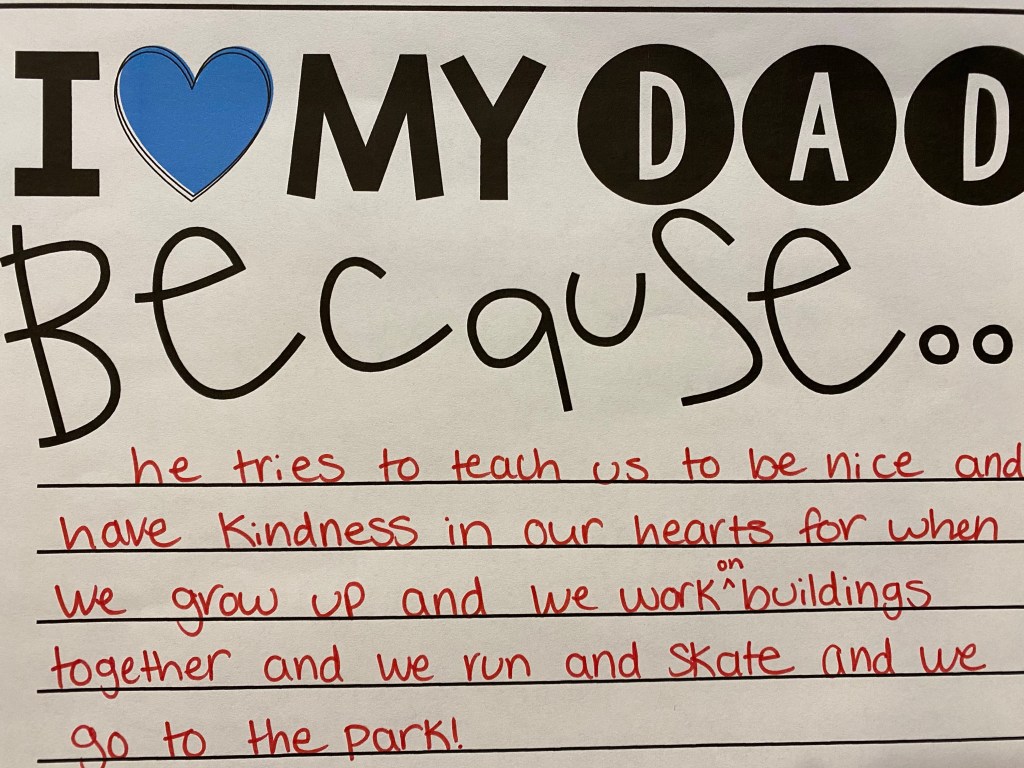 I MY DAD
Because..
he tries to teach us to be nice and
have kindness in our hearts for when
we grow up and we work ^on buildings
together and we run and skate and we
go to the park!